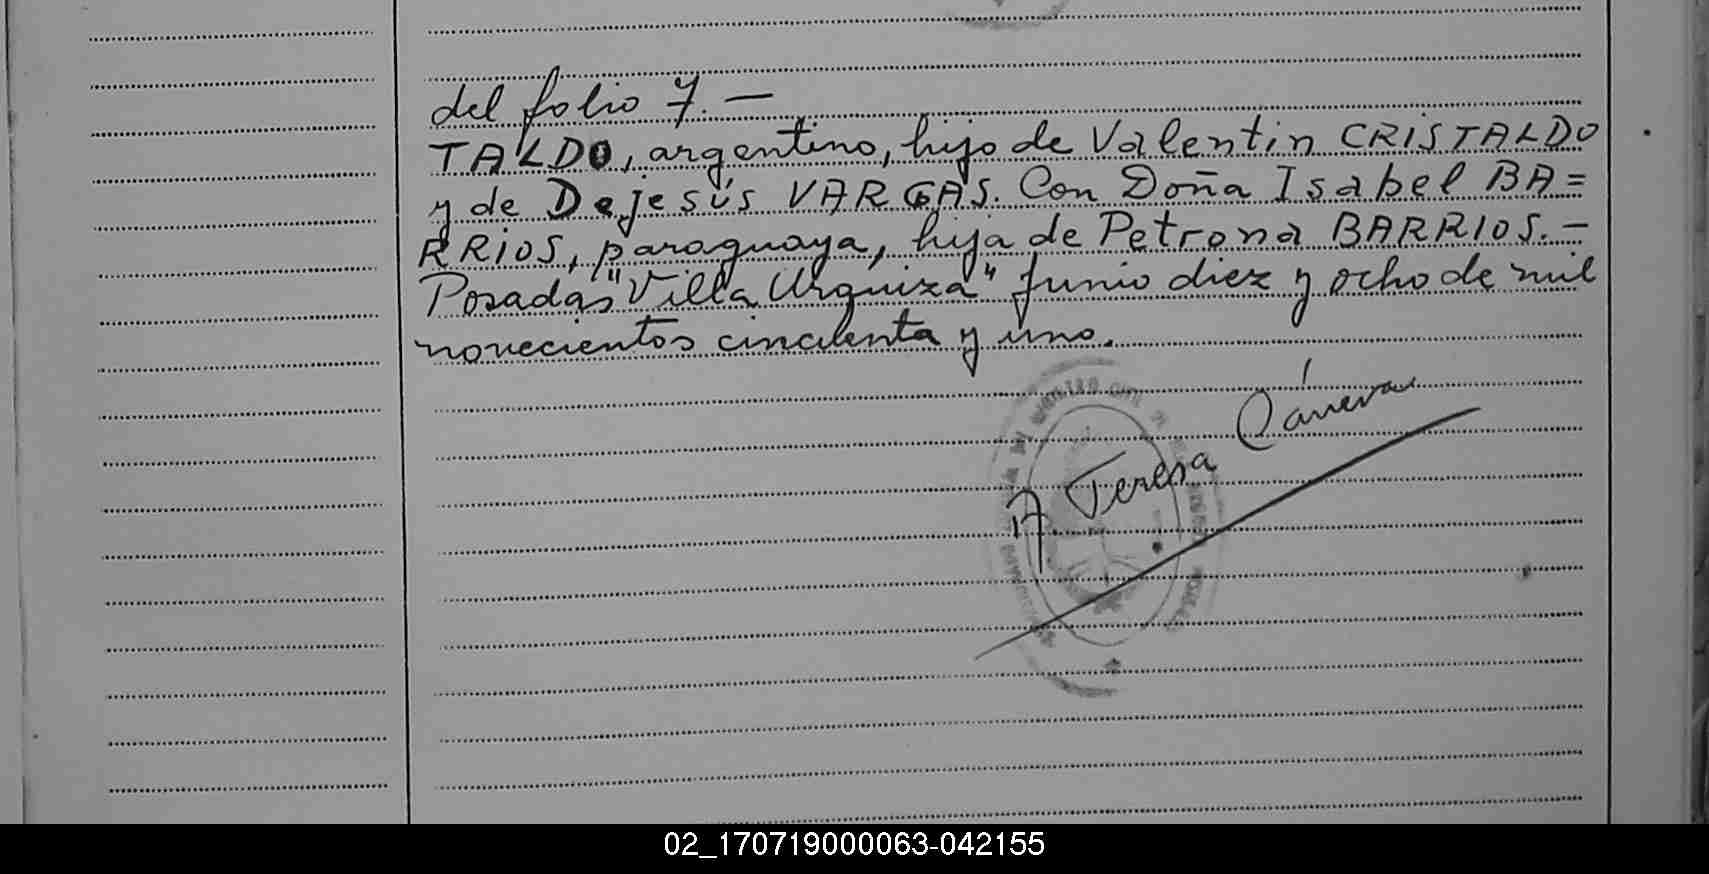 del folio 7. —
TALDO, argentino, hijo de Valentin CRISTALDO
y de Dejesús VARGAS. Con Doña Isabel BA=
RRIOS, paraguaya, hija de Petrona BARRIOS. —
Posadas "Villa Urquiza" Junio diez y ocho de mil
novecientos cincuenta y uno.
A Teresa
02_170719000063-042155